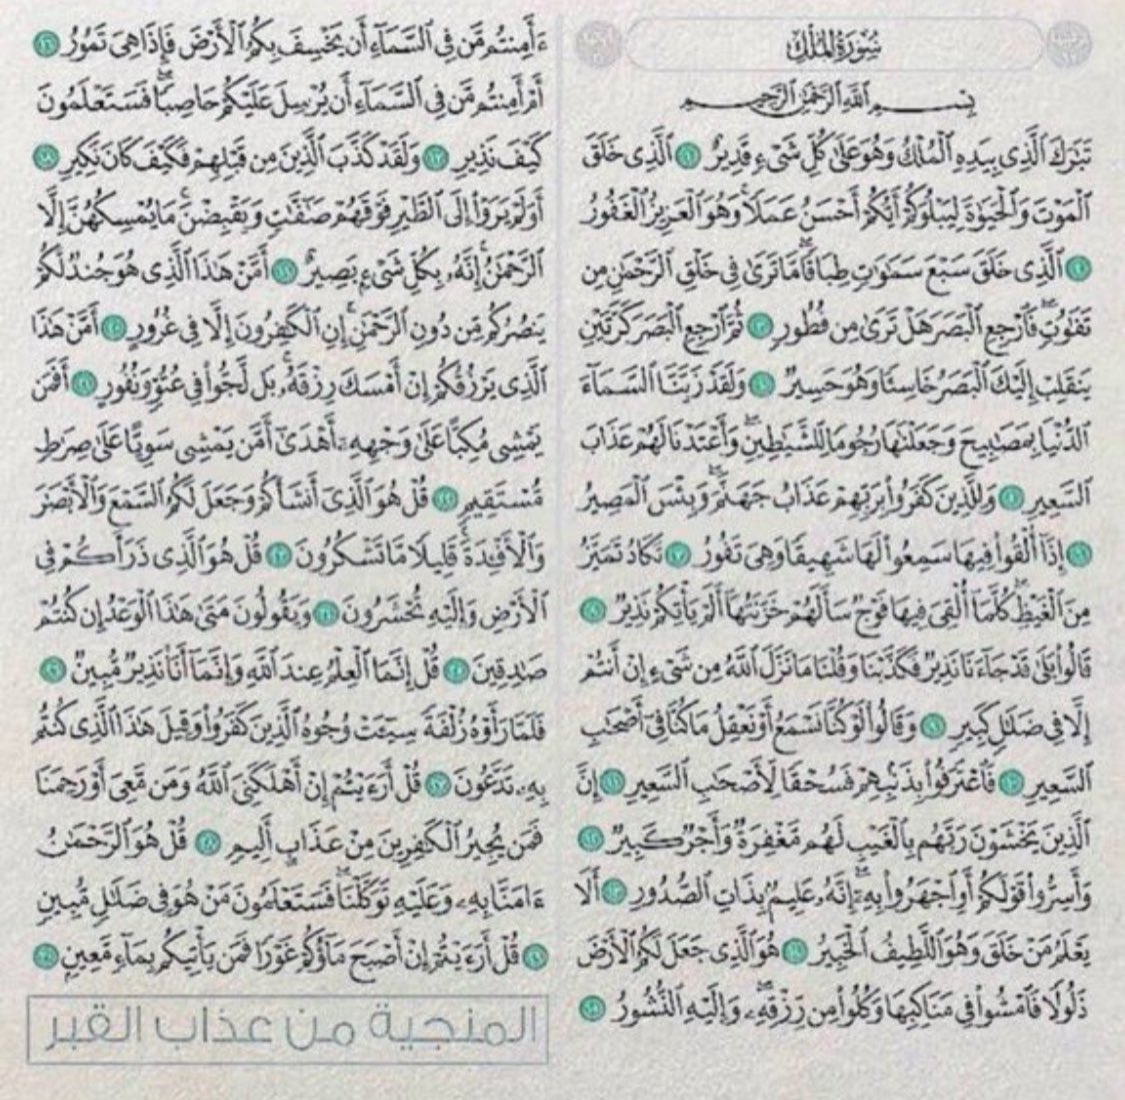 سُورَةُ المُلْكِ
بِسْمِ ٱللَّهِ ٱلرَّحْمَٰنِ ٱلرَّحِيمِ
تَبَٰرَكَ ٱلَّذِى بِيَدِهِ ٱلْمُلْكُ وَهُوَ عَلَىٰ كُلِّ شَىْءٍ قَدِيرٌ ١ ٱلَّذِى خَلَقَ
ٱلْمَوْتَ وَٱلْحَيَوٰةَ لِيَبْلُوَكُمْ أَيُّكُمْ أَحْسَنُ عَمَلًا ۚ وَهُوَ ٱلْعَزِيزُ ٱلْغَفُورُ
٢ ٱلَّذِى خَلَقَ سَبْعَ سَمَٰوَٰتٍ طِبَاقًا ۖ مَّا تَرَىٰ فِى خَلْقِ ٱلرَّحْمَٰنِ مِن
تَفَٰوُتٍ ۖ فَٱرْجِعِ ٱلْبَصَرَ هَلْ تَرَىٰ مِن فُطُورٍ ٣ ثُمَّ ٱرْجِعِ ٱلْبَصَرَ كَرَّتَيْنِ
يَنقَلِبْ إِلَيْكَ ٱلْبَصَرُ خَاسِئًا وَهُوَ حَسِيرٌ ٤ وَلَقَدْ زَيَّنَّا ٱلسَّمَآءَ
ٱلدُّنْيَا بِمَصَٰبِيحَ وَجَعَلْنَٰهَا رُجُومًا لِّلشَّيَٰطِينِ ۖ وَأَعْتَدْنَا لَهُمْ عَذَابَ
ٱلسَّعِيرِ ٥ وَلِلَّذِينَ كَفَرُوا۟ بِرَبِّهِمْ عَذَابُ جَهَنَّمَ ۖ وَبِئْسَ ٱلْمَصِيرُ
٦ إِذَآ أُلْقُوا۟ فِيهَا سَمِعُوا۟ لَهَا شَهِيقًا وَهِىَ تَفُورُ ٧ تَكَادُ تَمَيَّزُ
مِنَ ٱلْغَيْظِ ۖ كُلَّمَآ أُلْقِىَ فِيهَا فَوْجٌ سَأَلَهُمْ خَزَنَتُهَآ أَلَمْ يَأْتِكُمْ نَذِيرٌ ٨
قَالُوا۟ بَلَىٰ قَدْ جَآءَنَا نَذِيرٌ فَكَذَّبْنَا وَقُلْنَا مَا نَزَّلَ ٱللَّهُ مِن شَىْءٍ إِنْ أَنتُمْ
إِلَّا فِى ضَلَٰلٍ كَبِيرٍ ٩ وَقَالُوا۟ لَوْ كُنَّا نَسْمَعُ أَوْ نَعْقِلُ مَا كُنَّا فِىٓ أَصْحَٰبِ
ٱلسَّعِيرِ ١٠ فَٱعْتَرَفُوا۟ بِذَنۢبِهِمْ فَسُحْقًا لِّأَصْحَٰبِ ٱلسَّعِيرِ ١١ إِنَّ
ٱلَّذِينَ يَخْشَوْنَ رَبَّهُم بِٱلْغَيْبِ لَهُم مَّغْفِرَةٌ وَأَجْرٌ كَبِيرٌ ١٢
وَأَسِرُّوا۟ قَوْلَكُمْ أَوِ ٱجْهَرُوا۟ بِهِۦٓ ۖ إِنَّهُۥ عَلِيمٌۢ بِذَاتِ ٱلصُّدُورِ ١٣ أَلَا
يَعْلَمُ مَنْ خَلَقَ وَهُوَ ٱللَّطِيفُ ٱلْخَبِيرُ ١٤ هُوَ ٱلَّذِى جَعَلَ لَكُمُ ٱلْأَرْضَ
ذَلُولًا فَٱمْشُوا۟ فِى مَنَاكِبِهَا وَكُلُوا۟ مِن رِّزْقِهِۦ ۖ وَإِلَيْهِ ٱلنُّشُورُ ١٥
ءَأَمِنتُم مَّن فِى ٱلسَّمَآءِ أَن يَخْسِفَ بِكُمُ ٱلْأَرْضَ فَإِذَا هِىَ تَمُورُ ١٦
أَمْ أَمِنتُم مَّن فِى ٱلسَّمَآءِ أَن يُرْسِلَ عَلَيْكُمْ حَاصِبًا ۖ فَسَتَعْلَمُونَ
كَيْفَ نَذِيرِ ١٧ وَلَقَدْ كَذَّبَ ٱلَّذِينَ مِن قَبْلِهِمْ فَكَيْفَ كَانَ نَكِيرِ ١٨
أَوَلَمْ يَرَوْا۟ إِلَى ٱلطَّيْرِ فَوْقَهُمْ صَٰٓفَّٰتٍ وَيَقْبِضْنَ ۚ مَا يُمْسِكُهُنَّ إِلَّا
ٱلرَّحْمَٰنُ ۚ إِنَّهُۥ بِكُلِّ شَىْءٍۭ بَصِيرٌ ١٩ أَمَّنْ هَٰذَا ٱلَّذِى هُوَ جُندٌ لَّكُمْ
يَنصُرُكُم مِّن دُونِ ٱلرَّحْمَٰنِ ۚ إِنِ ٱلْكَٰفِرُونَ إِلَّا فِى غُرُورٍ ٢٠ أَمَّنْ هَٰذَا
ٱلَّذِى يَرْزُقُكُمْ إِنْ أَمْسَكَ رِزْقَهُۥ ۚ بَل لَّجُّوا۟ فِى عُتُوٍّ وَنُفُورٍ ٢١ أَفَمَن
يَمْشِى مُكِبًّا عَلَىٰ وَجْهِهِۦٓ أَهْدَىٰٓ أَمَّن يَمْشِى سَوِيًّا عَلَىٰ صِرَٰطٍ
مُّسْتَقِيمٍ ٢٢ قُلْ هُوَ ٱلَّذِىٓ أَنشَأَكُمْ وَجَعَلَ لَكُمُ ٱلسَّمْعَ وَٱلْأَبْصَٰرَ
وَٱلْأَفْـِٔدَةَ ۖ قَلِيلًا مَّا تَشْكُرُونَ ٢٣ قُلْ هُوَ ٱلَّذِى ذَرَأَكُمْ فِى
ٱلْأَرْضِ وَإِلَيْهِ تُحْشَرُونَ ٢٤ وَيَقُولُونَ مَتَىٰ هَٰذَا ٱلْوَعْدُ إِن كُنتُمْ
صَٰدِقِينَ ٢٥ قُلْ إِنَّمَا ٱلْعِلْمُ عِندَ ٱللَّهِ وَإِنَّمَآ أَنَا۠ نَذِيرٌ مُّبِينٌ ٢٦
فَلَمَّا رَأَوْهُ زُلْفَةً سِيٓـَٔتْ وُجُوهُ ٱلَّذِينَ كَفَرُوا۟ وَقِيلَ هَٰذَا ٱلَّذِى كُنتُم
بِهِۦ تَدَّعُونَ ٢٧ قُلْ أَرَءَيْتُمْ إِنْ أَهْلَكَنِىَ ٱللَّهُ وَمَن مَّعِىَ أَوْ رَحِمَنَا
فَمَن يُجِيرُ ٱلْكَٰفِرِينَ مِنْ عَذَابٍ أَلِيمٍ ٢٨ قُلْ هُوَ ٱلرَّحْمَٰنُ
ءَامَنَّا بِهِۦ وَعَلَيْهِ تَوَكَّلْنَا ۖ فَسَتَعْلَمُونَ مَنْ هُوَ فِى ضَلَٰلٍ مُّبِينٍ
٢٩ قُلْ أَرَءَيْتُمْ إِنْ أَصْبَحَ مَآؤُكُمْ غَوْرًا فَمَن يَأْتِيكُم بِمَآءٍ مَّعِينٍۭ ٣٠
المنجية من عذاب القبر